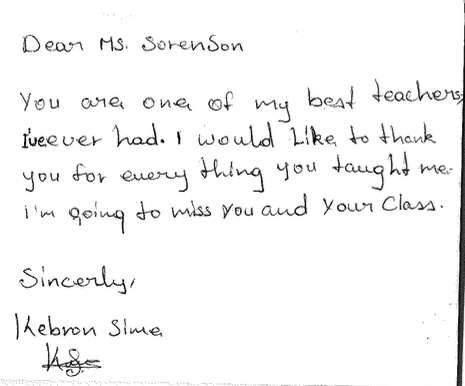 Dear Ms. Sorenson
You are one of my best teachers,
I'veever had. I would Like to thank
you for every thing you taught me.
i'm going to miss you and your Class.
Sincerly,
Kebron Sima